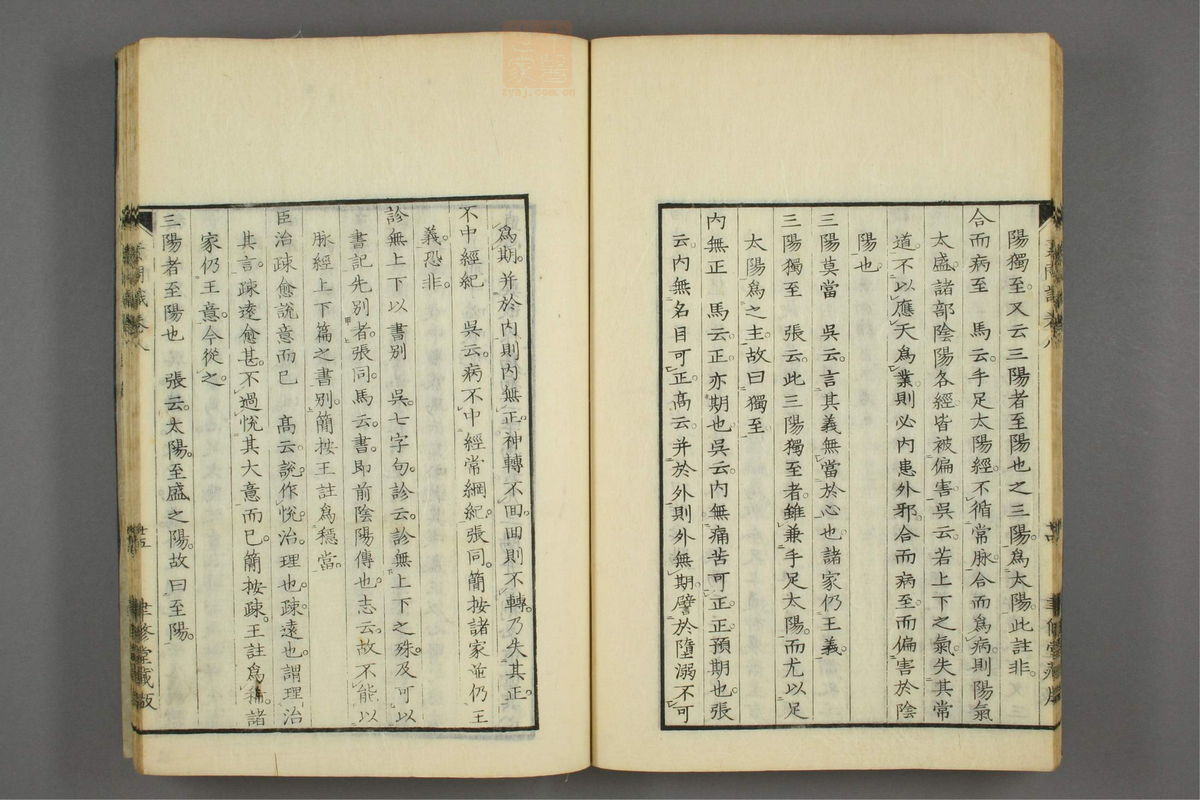 陽獨至又云三陽者至陽也之三陽爲太陽此註非
合而病至　馬云手足太陽經不循常脉合而爲病則陽氣
太盛諸部陰陽各經皆被偏害吳云若上下之氣失其常
道不以應天爲業則必內患外邪合而病至而偏害於陰
陽也
三陽莫當　吳云言其義無當於心也諸家仍王義
三陽獨至　張云此三陽獨至者雖兼手足太陽而尤以足
太陽爲之主故曰獨至
內無正　馬云正亦期也吳云內無痛苦可正正預期也張
云內無名目可正高云并於外則外無期譬於墮溺不可
爲期并於內則內無正神轉不回回則不轉乃失其正
不中經紀　吳云病不中經常綱紀張同簡按諸家並仍王
義恐非
診無上下以書別　吳七字句診云診無上下之殊及可以
書記先別者張同馬云書即前陰陽傳也志云故不能以
脉經上下篇之書別簡按王註爲穩當
臣治疎愈說意而已　高云說作悅治理也疎遠也謂理治
其言疎遠愈甚不過悅其大意而已簡按疎王註爲稀諸
家仍王意今從之
三陽者至陽也　張云太陽至盛之陽故曰至陽
素問識卷八
廿五
聿修堂藏版